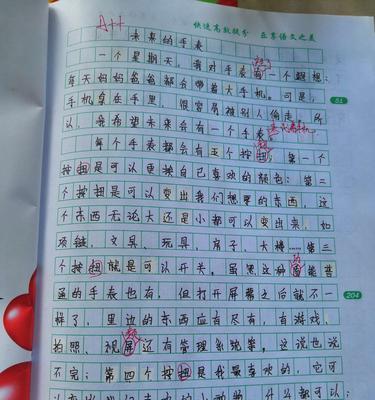 A++
快速高效提分 点亮语文之美
未来的手表
一个星期天，我对手表有一个联想：
每天妈妈爸爸都会带着大手机。可是，
手机拿在手里，很容易被别人偷走。所
以，我希望未来会有一个手表。
84
每个手表都会有五个按扭，第一个
按扭是可以更换自己喜欢的颜色；第二
个按扭是可以变出我们想要的东西，这
个东西无论大还是小都可以变出来，如
项链、文具、玩具、房子、大楼……第三
个按扭就是可以开关。虽然这种普能普
通的手表也有，但打开屏幕之后就不一
204
样了，里边的东西应有尽有，有游戏、
拍照、视屏还有管理系统等。这说也说
不完；第四个按扭是我最喜欢的，它可